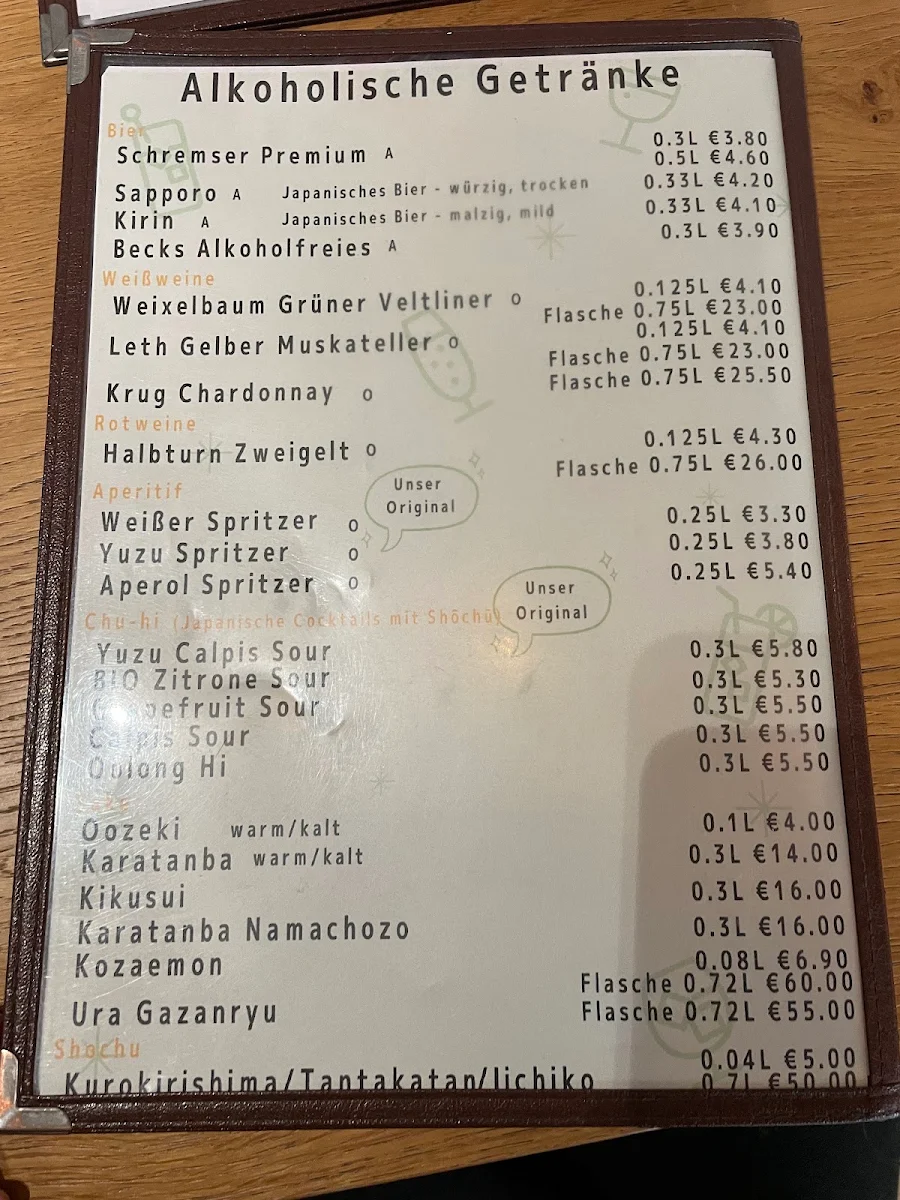 Alkoholische Getränke
Bier
Schremser Premium A 0.3L €3.80
0.5L €4.60
Sapporo A Japanisches Bier - würzig, trocken 0.33L €4.20
Kirin A Japanisches Bier - malzig, mild 0.33L €4.10
Becks Alkoholfreies A 0.3L €3.90
Weißweine
Weixelbaum Grüner Veltliner O 0.125L €4.10
Flasche 0.75L €23.00
Leth Gelber Muskateller O 0.125L €4.10
Flasche 0.75L €23.00
Krug Chardonnay O Flasche 0.75L €25.50
Rotweine
Halbturn Zweigelt O 0.125L €4.30
Flasche 0.75L €26.00
Aperitif
Unser
Original
Weißer Spritzer O 0.25L €3.30
Yuzu Spritzer O 0.25L €3.80
Aperol Spritzer O 0.25L €5.40
Unser
Original
Chu-hi (Japanische Cocktails mit Shōchū)
Yuzu Calpis Sour 0.3L €5.80
BIO Zitrone Sour 0.3L €5.30
Grapefruit Sour 0.3L €5.50
Calpis Sour 0.3L €5.50
Oolong Hi 0.3L €5.50
Oozeki warm/kalt 0.1L €4.00
Karatanba warm/kalt 0.3L €14.00
Kikusui 0.3L €16.00
Karatanba Namachozo 0.3L €16.00
Kozaemon 0.08L €6.90
Flasche 0.72L €60.00
Ura Gazanryu Flasche 0.72L €55.00
Shochu
Kurokirishima/Tantakatan/Iichiko 0.04L €5.00
0.7L €50.00